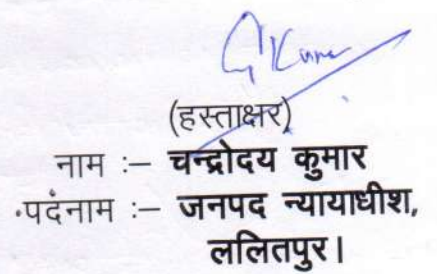 (हस्ताक्षर)
नाम :– चन्द्रोदय कुमार
पदनाम :– जनपद न्यायाधीश,
ललितपुर।